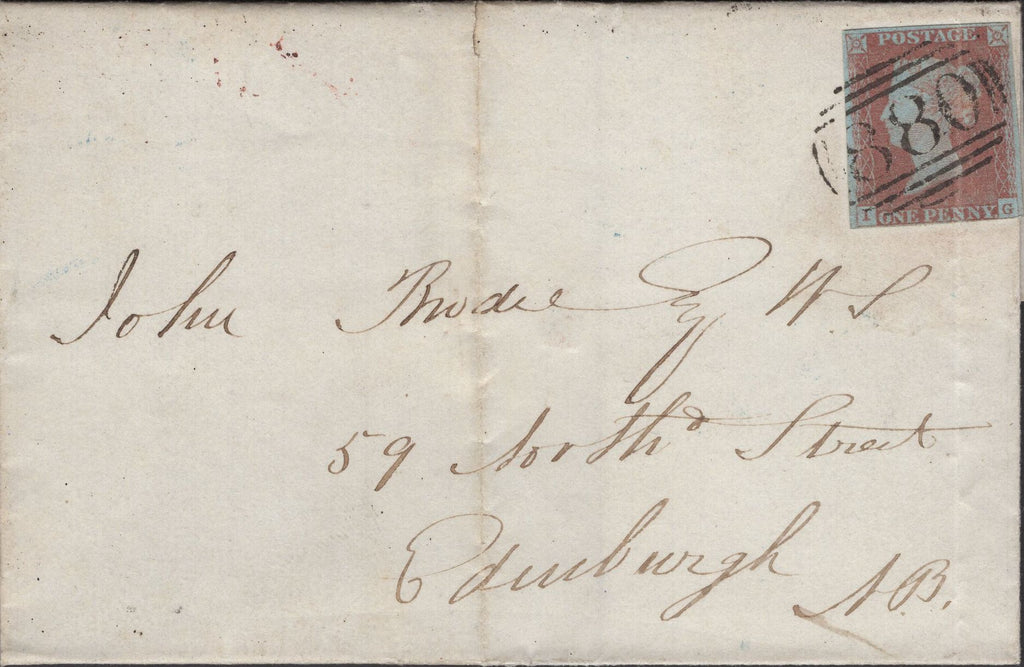 POSTAGE
880
I G
ONE PENNY.
John Brodie Esq W S
59 North.d Street
Edinburgh
N.B.